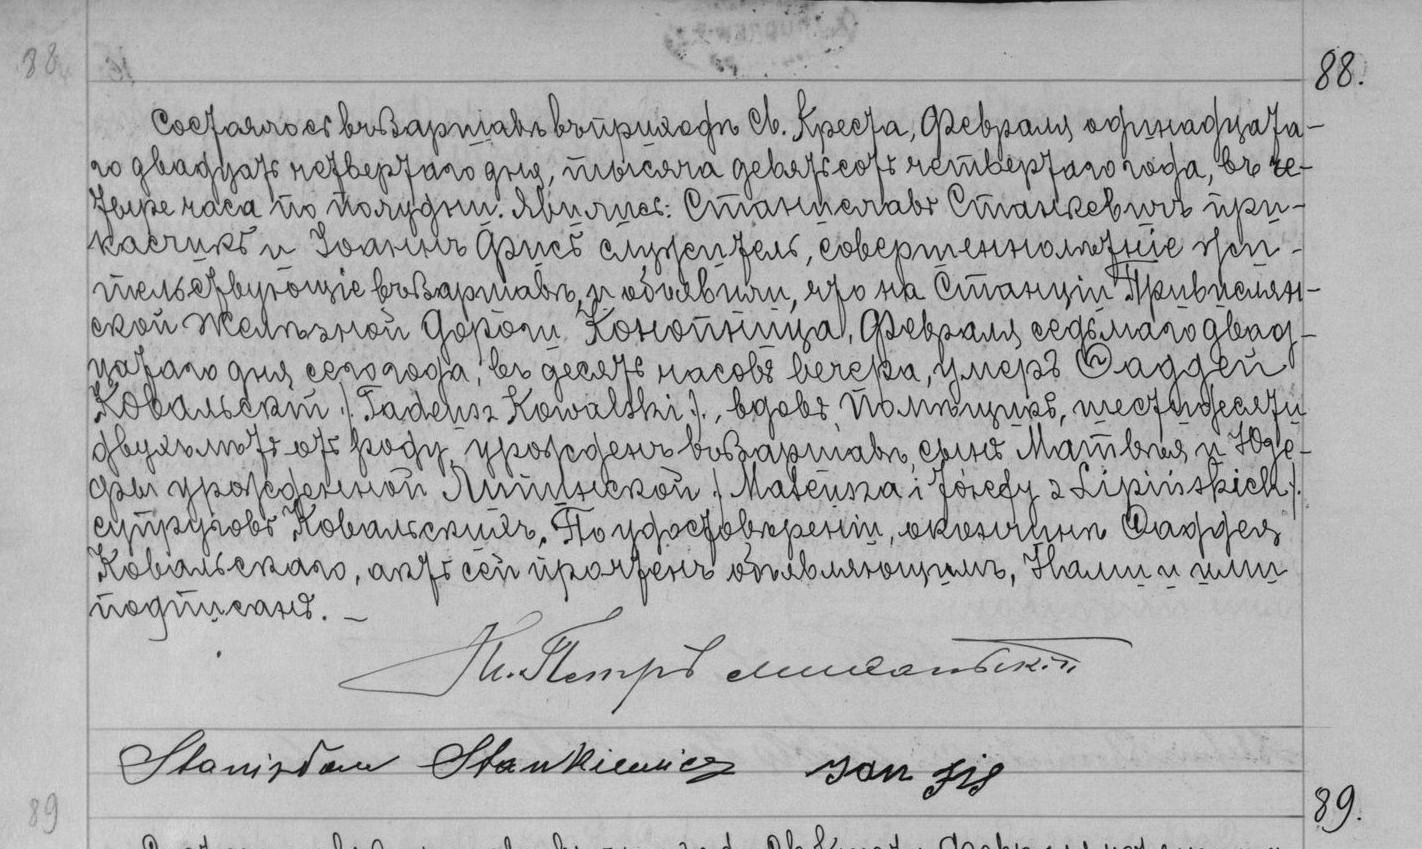 88.
Состоялось въ Варшавѣ въ приходѣ Св. Креста, Февраля одинадцата-
го двадцать четвертаго дня, тысяча девятьсотъ четвертаго года, въ че-
тыре часа по полудни. Явились: Станиславъ Станкевичъ при-
касчикъ и Іоаннъ Фисъ служитель, совершеннолѣтніе жи-
тельствующіе въ Варшавѣ, и объявили, что на Станціи Привислян-
ской Желѣзной Дороги Конопница, Февраля седьмаго двад-
цатаго дня сего года, въ десять часовъ вечера, умеръ Фаддей
Ковальскій /Tadeusz Kowalski/., вдовъ, помѣщикъ, шестидесяти
двухъ лѣтъ отъ роду, урожденъ въ Варшавѣ, сынъ Матвѣя и Юзе-
фы урожденной Липинской /Mateusza i Józefy z Lipińskich/.
супруговъ Ковальскихъ. По удостовѣреніи о кончинѣ Фаддея
Ковальскаго, актъ сей прочтенъ объявляющимъ, Нами и ими
подписанъ. —
Петръ
Stanisław Stankiewicz Jan Fis
89.